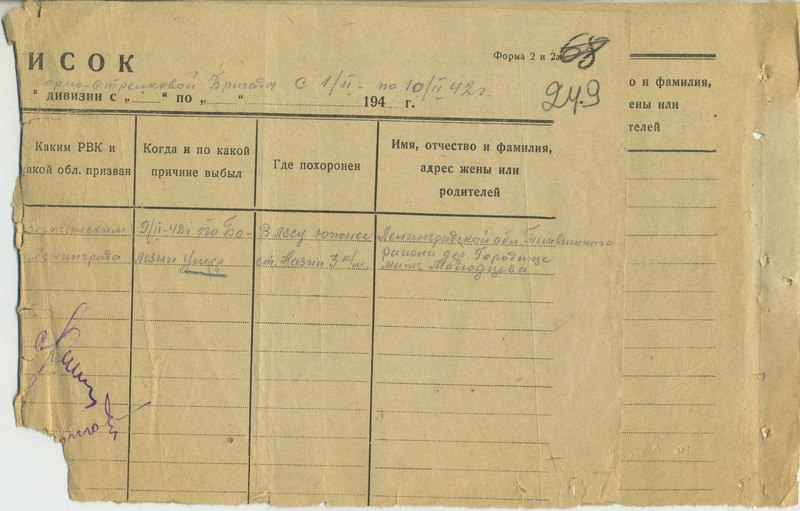 ИСОК
Форма 2 и 2а
68
249
Стрелковой Бригада с 1/II - по 10/II 42 г.
" дивизии с „ " по „ " 194 г.
Каким РВК и
какой обл. призван
Когда и по какой
причине выбыл
Где похоронен
Имя, отчество и фамилия,
адрес жены или
родителей
о и фамилия,
ены или
телей
9/II-42 г по Бо-
лезни Умер
В лесу южнее
ст. Назии 3 к/м.
Ленинградской обл Тихвинского
района дер. Городище
мать Молодцова
Ленинграда